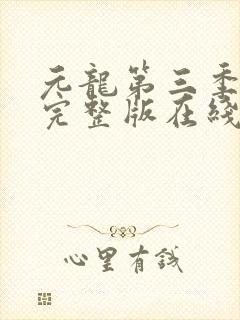 元龍第三季
完整版在綫
心里有錢